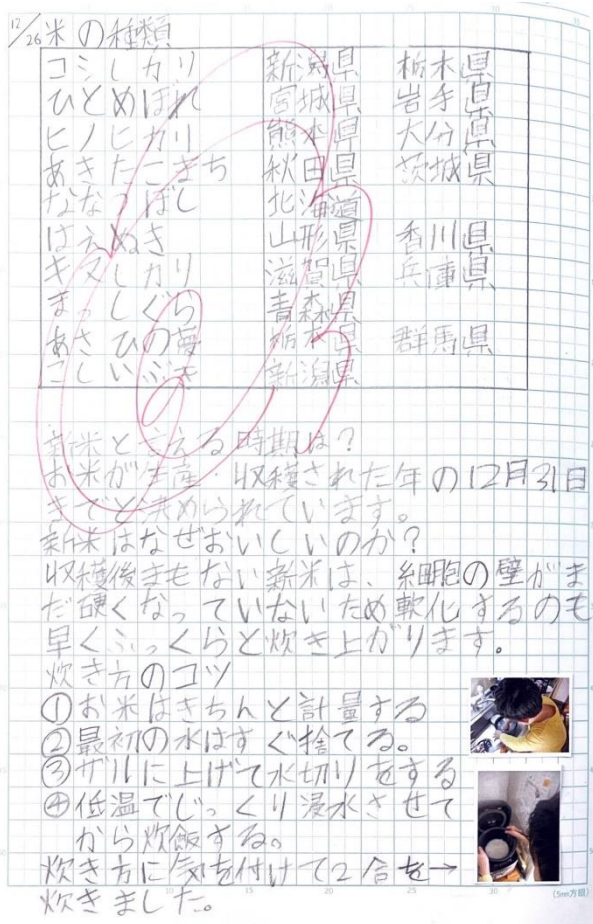 12/26 米の種類
コシヒカリ 新潟県 栃木県
ひとめぼれ 宮城県 岩手県
ヒノヒカリ 熊本県 大分県
あきたこまち 秋田県 茨城県
ななつぼし 北海道
はえぬき 山形県 香川県
キヌヒカリ 滋賀県 兵庫県
まっしぐら 青森県
あさひの夢 栃木県 群馬県
こしいぶき 新潟県
新米と言える時期は?
お米が生産・収穫された年の12月31日
までと決められています。
新米はなぜおいしいのか?
収穫後まもない新米は、細胞の壁がま
だ硬くなっていないため軟化するのも
早くふっくらと炊き上がります。
炊き方のコツ
①お米はきちんと計量する
②最初の水はすぐ捨てる。
③ザルに上げて水切りをする
④低温でじっくり浸水させて
から炊飯する。
炊き方に気を付けて2合を→
炊きました。
(5mm方眼)